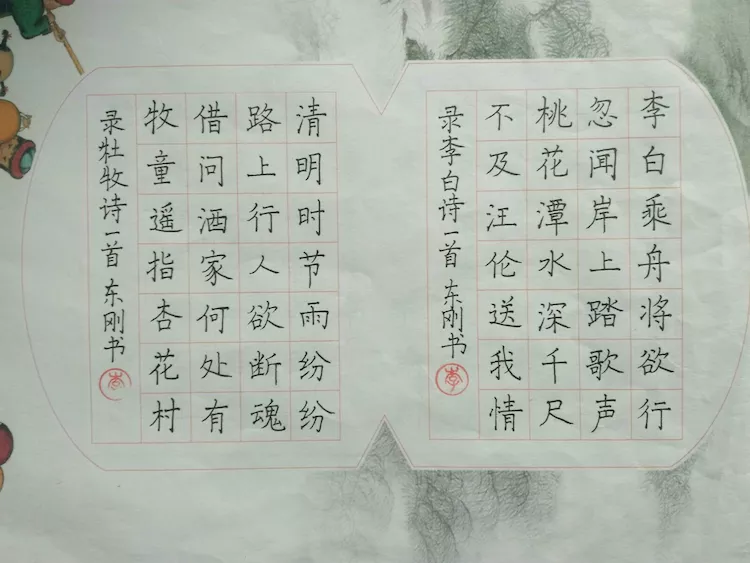 李白乘舟将欲行
忽闻岸上踏歌声
桃花潭水深千尺
不及汪伦送我情
录李白诗一首 东刚书
清明时节雨纷纷
路上行人欲断魂
借问洒家何处有
牧童遥指杏花村
录牡牧诗一首 东刚书